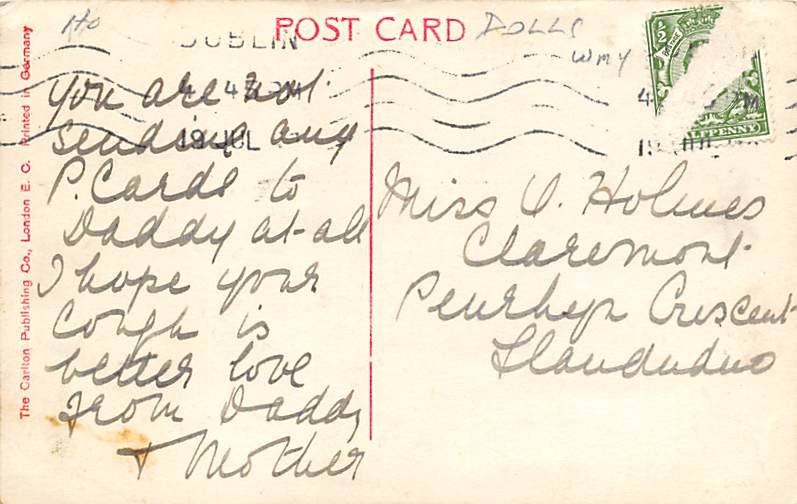 POST CARD
DOLLS
WMY
DUBLIN
4
19 JUL
½
HALFPENNY
You are not
sending any
P. Cards to
Daddy at all
I hope your
Cough is
better love
From Daddy
& Mother
Miss O. Holmes
Claremont
Penrhyn Crescent
Llandudno
The Carlton Publishing Co., London E. C. Printed in Germany